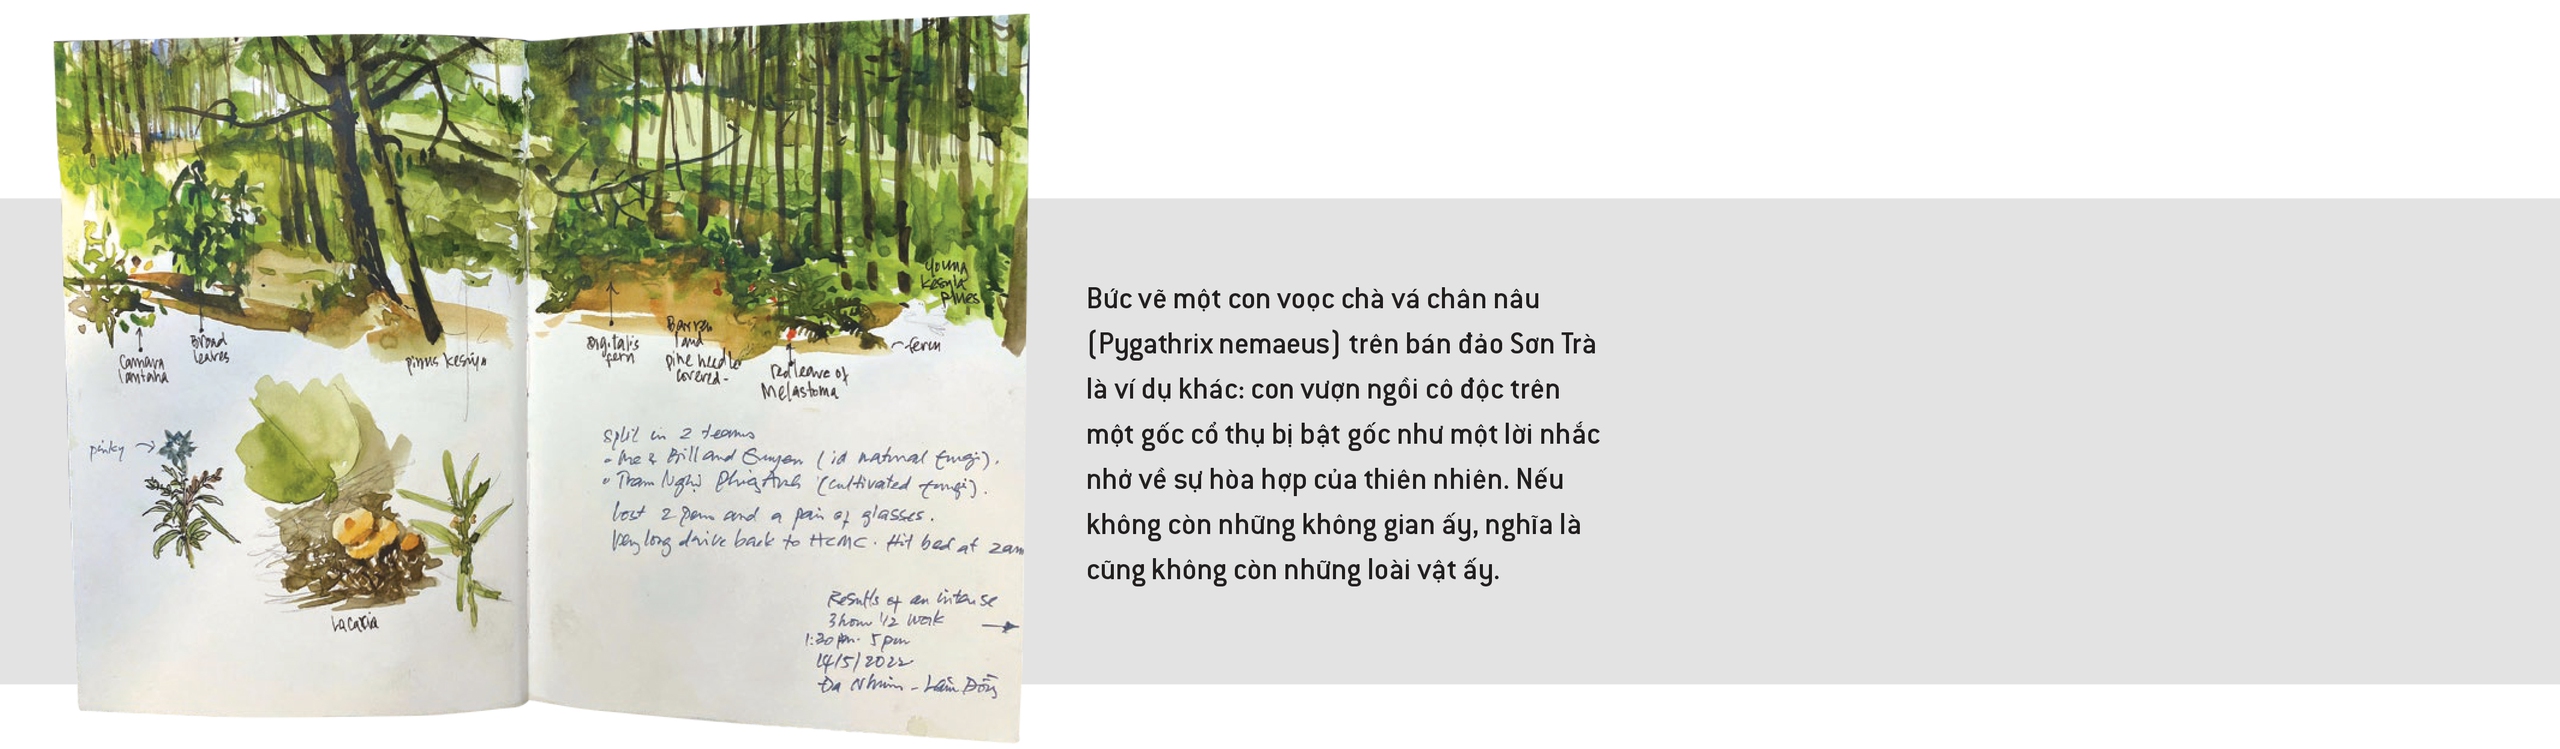 young
kesyia
pines
Camara
lantana
Broad
leaves
pinus kesiya
Digitalis
fern
Barren
land
pine needle
covered-
red leave of
Melastoma
fern
pinky
Lacaria
split in 2 teams
- me & Bill and (id natural fungi).
Tram Nghị (cultivated fungi).
lost 2 pens and a pair of glasses.
Very long drive back to HCMC. Hit bed at 2am
Results of an intense
3hour 1/2 work
1:30pm- 5pm
14/5/2022
Đa Nhim - Lâm Đồng
Bức vẽ một con voọc chà vá chân nâu
(Pygathrix nemaeus) trên bán đảo Sơn Trà
là ví dụ khác: con vượn ngồi cô độc trên
một gốc cổ thụ bị bật gốc như một lời nhắc
nhở về sự hòa hợp của thiên nhiên. Nếu
không còn những không gian ấy, nghĩa là
cũng không còn những loài vật ấy.